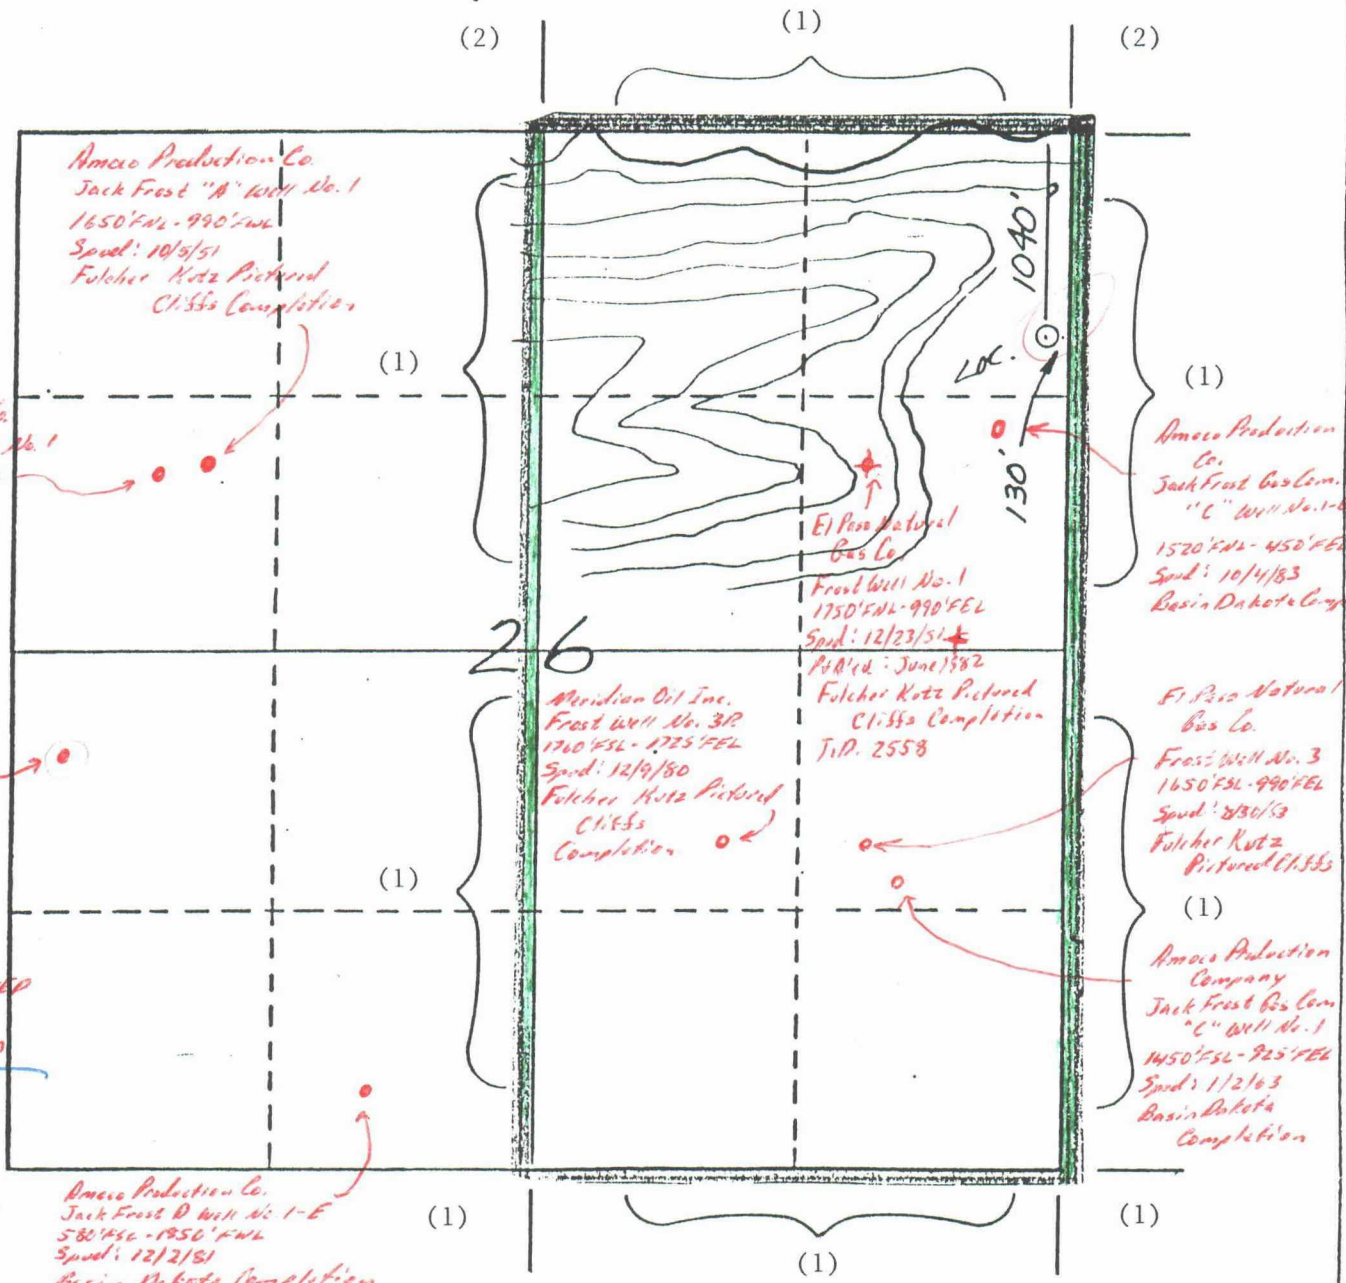 (2)
(1)
(2)
Amoco Production Co.
Jack Frost "A" Well No. 1
1650' FNL - 990' FWL
Spud: 10/5/51
Fulcher Kutz Pictured
Cliffs Completion
(1)
1040'
LOC.
130'
(1)
No. 1
Amoco Production
Co.
Jack Frost Gas Com.
"C" Well No. 1-
1520' FNL - 450' FEL
Spud: 10/4/83
Basin Dakota Comp
El Paso Natural
Gas Co.
Frost Well No. 1
1750' FNL - 990' FEL
Spud: 12/23/51
P&A'ed: June 1982
Fulcher Kutz Pictured
Cliffs Completion
T.D. 2558
26
Meridian Oil Inc.
Frost Well No. 3R
1760' FSL - 1725' FEL
Spud: 12/9/80
Fulcher Kutz Pictured
Cliffs
Completion
El Paso Natural
Gas Co.
Frost Well No. 3
1650' FSL - 990' FEL
Spud: /30/53
Fulcher Kutz
Pictured Cliffs
(1)
(1)
Amoco Production
Company
Jack Frost Gas Com
"C" Well No. 1
1450' FSL - 925' FEL
Spud: 1/2/63
Basin Dakota
Completion
Amoco Production Co.
Jack Frost D Well No. 1-E
580' FSL - 1850' FWL
Spud: 12/2/81
Basin Dakota Completion
(1)
(1)
(1)